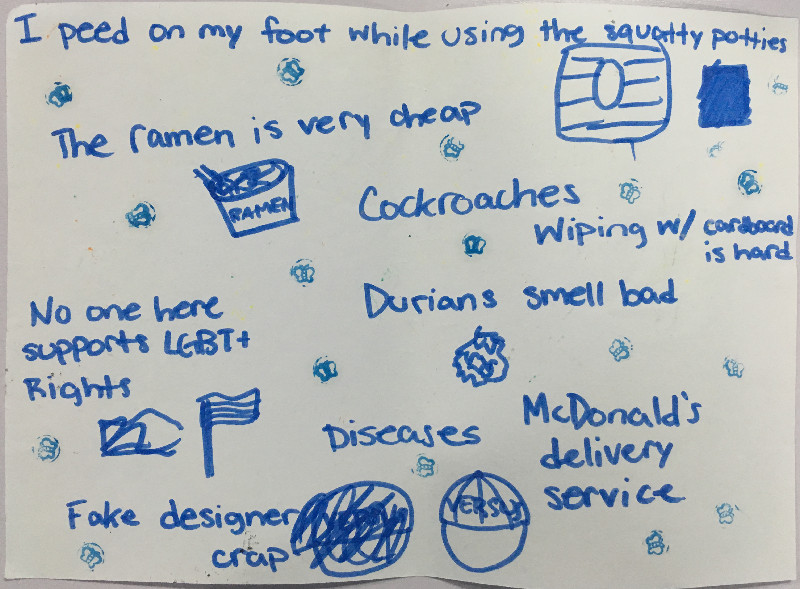 I peed on my foot while using the squatty potties
The ramen is very cheap
RAMEN
Cockroaches
Wiping w/ cardboard
is hard
Durians smell bad
No one here
supports LGBT+
Rights
Diseases
McDonald's
delivery
service
Fake designer
crap
VERSUS